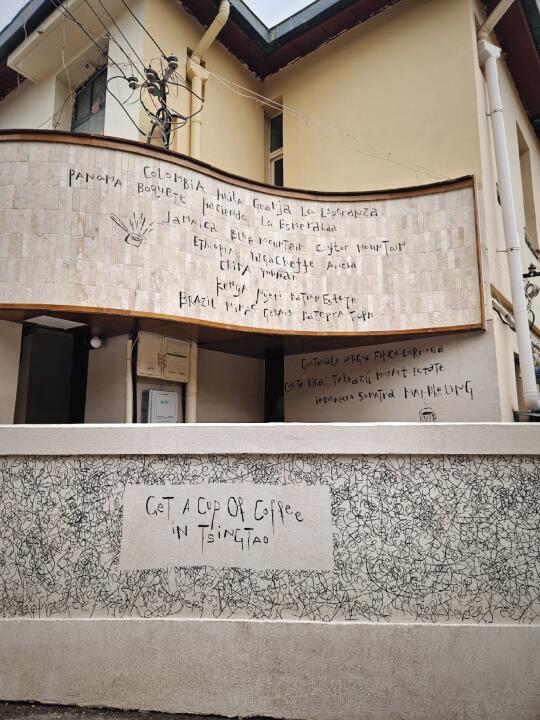 COLOMBIA Huila Granja La Esperanza
PANAMA BOQUETE Hacienda La Esmeralda
Jamaica Blue Mountain Clifton Mountain
Ethiopia Yirgacheffe Aricha
CHINA Yunnan
Kenya Nyeri
BRAZIL Minas Gerais Daterra Farm
Guatemala Antigua Finca Carmona
Costa Rica Tarrazú Mozart Estate
indonesia Sumatra MANDHELING
GeT A Cup Of Coffee
in TsingTao